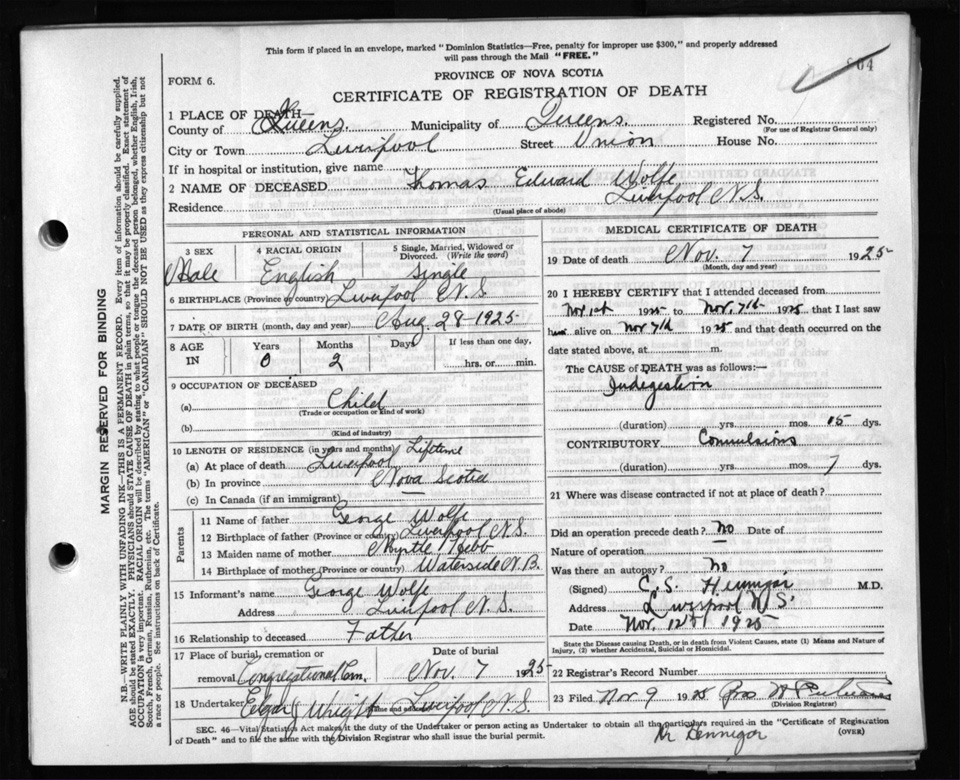 This form if placed in an envelope, marked "Dominion Statistics—Free, penalty for improper use $300," and properly addressed
will pass through the Mail "FREE."
FORM 6.
PROVINCE OF NOVA SCOTIA
CERTIFICATE OF REGISTRATION OF DEATH
1 PLACE OF DEATH—
County of Queens. Municipality of Queens. Registered No.
(For use of Registrar General only)
City or Town Liverpool Street Union House No.
If in hospital or institution, give name
2 NAME OF DECEASED Thomas Edward Wolfe
Residence Liverpool N.S.
(Usual place of abode)
PERSONAL AND STATISTICAL INFORMATION
3 SEX 4 RACIAL ORIGIN 5 Single, Married, Widowed or Divorced. (Write the word)
Male English Single
6 BIRTHPLACE (Province or country) Liverpool N.S.
7 DATE OF BIRTH (month, day and year) Aug. 28-1925
8 AGE IN Years Months Days If less than one day,
0 2 hrs. or min.
9 OCCUPATION OF DECEASED
(a) Child
(Trade or occupation or kind of work)
(b)
(Kind of industry)
10 LENGTH OF RESIDENCE (in years and months) Lifetime
(a) At place of death Liverpool
(b) In province Nova Scotia
(c) In Canada (if an immigrant)
Parents
11 Name of father George Wolfe
12 Birthplace of father (Province or country) Liverpool N.S.
13 Maiden name of mother Myrtle Hebb
14 Birthplace of mother (Province or country) Waterside N.B.
15 Informant's name George Wolfe
Address Liverpool N.S.
16 Relationship to deceased Father
17 Place of burial, cremation or removal Date of burial
Congregational Cem. Nov. 7 1925
18 Undertaker Elgar Wright Liverpool N.S.
MEDICAL CERTIFICATE OF DEATH
19 Date of death Nov. 7 1925
(Month, day and year)
20 I HEREBY CERTIFY that I attended deceased from
Nov 1st 1925 to Nov. 7th 1925 that I last saw
him alive on Nov 7th 1925 and that death occurred on the
date stated above, at m.
The CAUSE of DEATH was as follows:—
Indigestion
(duration) yrs. mos. 15 dys.
CONTRIBUTORY Convulsions
(duration) yrs. mos. 7 dys.
21 Where was disease contracted if not at place of death?
Did an operation precede death? No Date of
Nature of operation
Was there an autopsy? No
(Signed) C. S. M.D.
Address Liverpool N.S.
Date Nov. 12th 1925
State the Disease causing Death, or in death from Violent Causes, state (1) Means and Nature of
Injury, (2) whether Accidental, Suicidal or Homicidal.
22 Registrar's Record Number
23 Filed Nov 9 1925
(Division Registrar)
SEC. 46—Vital Statistics Act makes it the duty of the Undertaker or person acting as Undertaker to obtain all the particulars required in the "Certificate of Registration
of Death" and to file the same with the Division Registrar who shall issue the burial permit.
(OVER)
MARGIN RESERVED FOR BINDING
N.B.—WRITE PLAINLY WITH UNFADING INK—THIS IS A PERMANENT RECORD. Every item of information should be carefully supplied.
AGE should be stated EXACTLY. PHYSICIANS should STATE CAUSE OF DEATH in plain terms, so that it may be properly classified. Exact statement of
OCCUPATION is very important. RACIAL ORIGIN will be described by stating to what people or tongue the deceased person belonged, whether English, Irish,
Scotch, French, German, Russian, Ruthenian, etc. The terms "AMERICAN" or "CANADIAN" SHOULD NOT BE USED as they express citizenship but not
a race or people. See instructions on back of Certificate.